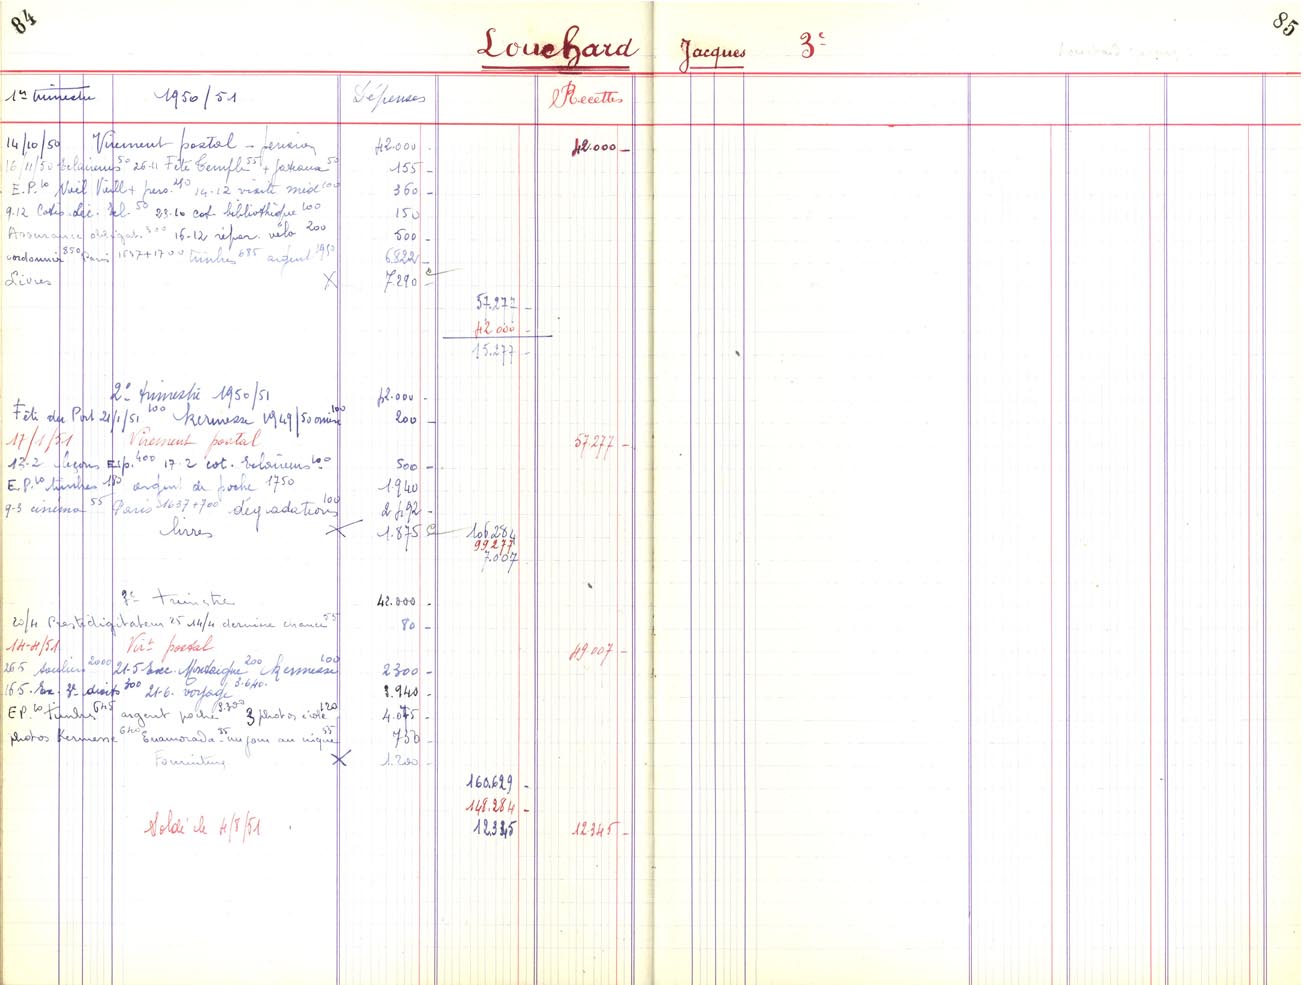 84
85
Louchard Jacques 3e
1er trimestre 1950/51 Dépenses Recettes
14/10/50 Virement postal - pension 42.000 - 42.000 -
16/11/50 Eclaireurs 50 26-11 Fête 55 + 50 155 -
E.P. 10 Noël Vieill + pers. 210 14-12 visite méd 100 360 -
9.12 Cotis. 50 23.10 cot. bibliothèque 100 150
Assurance obligat. 300 16-12 répar. vélo 200 500 -
cordonnier 850 Paris 1637+1700 timbres 685 argent 1950 6.822 -
Livres X 7.290 -
57.277 -
42 000 -
15.277 -
2e trimestre 1950/51 42.000 -
Fête du Port 21/1/51 100 Kermesse 1949/50 omise 100 200 -
17/1/51 Virement postal 57.277 -
13-2 leçons Esp. 400 17-2 cot. Eclaireurs 100 500 -
E.P. 10 timbres 180 argent de poche 1750 1.940
9-3 cinéma 55 Paris 1637+700 dégradations 100 2.492 -
livres X 1.875 106.284
99.277
7.007
3e trimestre 42.000 -
20/4 Prestidigitateur 25 14/4 dernière chance 55 80 -
14-4/51 Virt postal 49.007 -
26 5 souliers 2000 21-5 Exc. Montaigne 200 Kermesse 100 2300 -
16 5. Ex. 3e droits 300 21-6. voyage 3.640. 3.940 -
E.P. 10 timbres 645 argent poche 3.300 3 photos école 120 4.075 -
photos Kermesse 640 Enamorada 55 un jour au cirque 55 750 -
Fourniture X 1.200 -
160.629 -
148.284 -
Soldé le 4/8/51 12.345 12.345 -